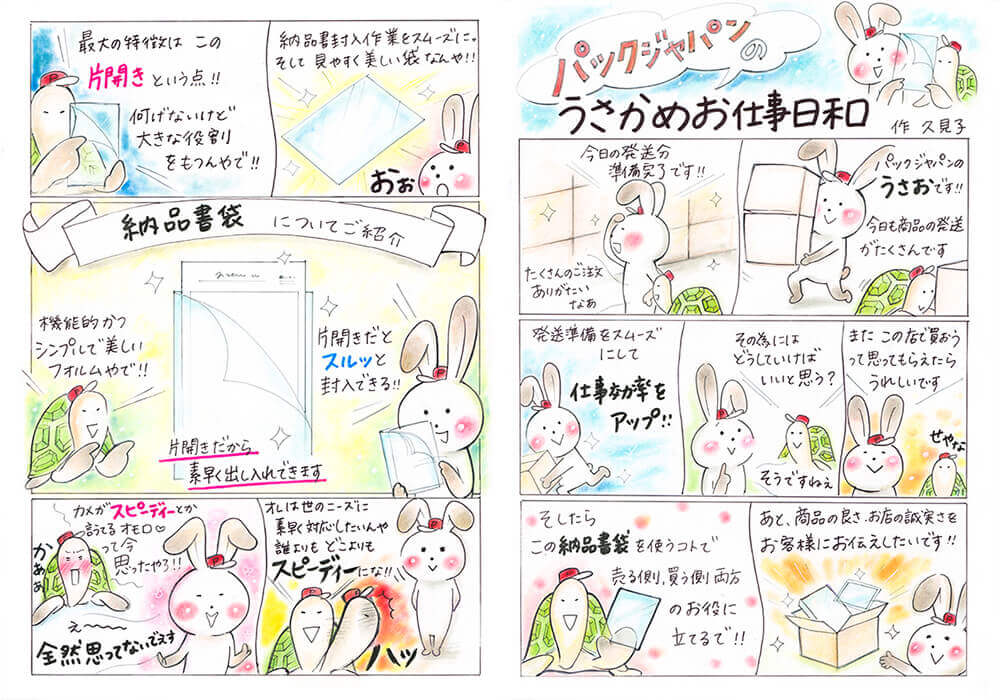 パックジャパンの
うさかめお仕事日和
作 久見子
パックジャパンの
うさおです!!
今日も商品の発送
がたくさんです
今日の発送分
準備完了です!!
たくさんのご注文
ありがたい
なあ
また この店で買おう
って思ってもらえたら
うれしいです
せやな
その為には
どうしていけば
いいと思う?
そうですねぇ
発送準備をスムーズ
にして
仕事効率を
アップ!!
あと、商品の良さ、お店の誠実さを
お客様にお伝えしたいです!!
そしたら
この納品書袋を使うコトで
売る側、買う側 両方
のお役に
立てるで!!
納品書封入作業をスムーズに。
そして 見やすく美しい袋なんや!!
おぉ
最大の特徴は この
片開きという点!!
何げないけど
大きな役割
をもつんやで!!
納品書袋 についてご紹介
片開きだと
スルッと
封入できる!!
機能的かつ
シンプルで美しい
フォルムやで!!
片開きだから
素早く出し入れできます
オレは世のニーズに
素早く対応したいんや
誰よりも どこよりも
スピーディーにな!!
ハッ
カメがスピーディーとか
言うてる オモロ♡
って今
思ったやろ!!
かぁぁ
え〜〜
全然思ってないでえす